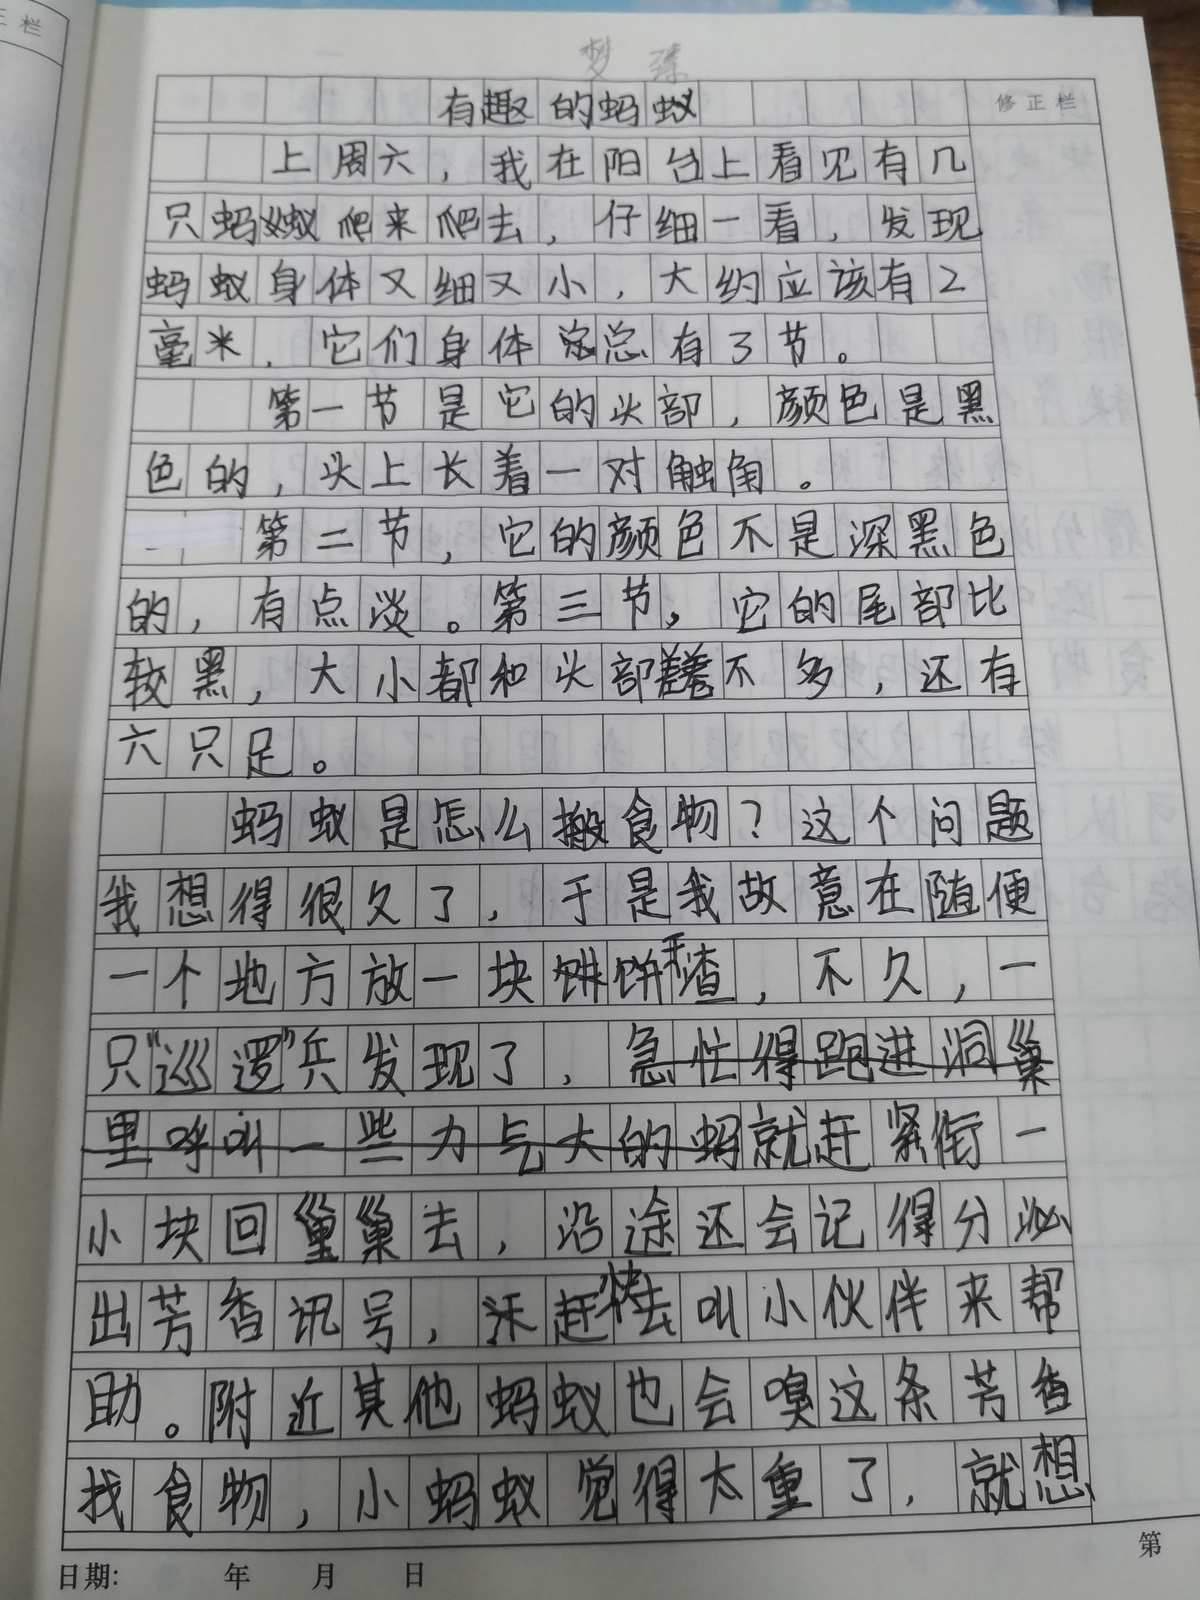 正栏
梦
有趣的蚂蚁
修正栏
上周六，我在阳台上看见有几
只蚂蚁爬来爬去，仔细一看，发现
蚂蚁身体又细又小，大约应该有2
毫米，它们身体总有3节。
第一节是它的头部，颜色是黑
色的，头上长着一对触角。
第二节，它的颜色不是深黑色
的，有点淡。第三节，它的尾部比
较黑，大小都和头部差不多，还有
六只足。
蚂蚁是怎么搬食物？这个问题
我想得很久了，于是我故意在随便
一个地方放一块饼干渣，不久，一
只"巡逻"兵发现了，急忙得跑进洞巢
里呼叫一些力气大的蚂就赶紧衔一
小块回巢去，沿途还会记得分泌
出芳香讯号，还赶快去叫小伙伴来帮
助。附近其他蚂蚁也会嗅这条芳香
找食物，小蚂蚁觉得太重了，就想
日期：　年　月　日
第